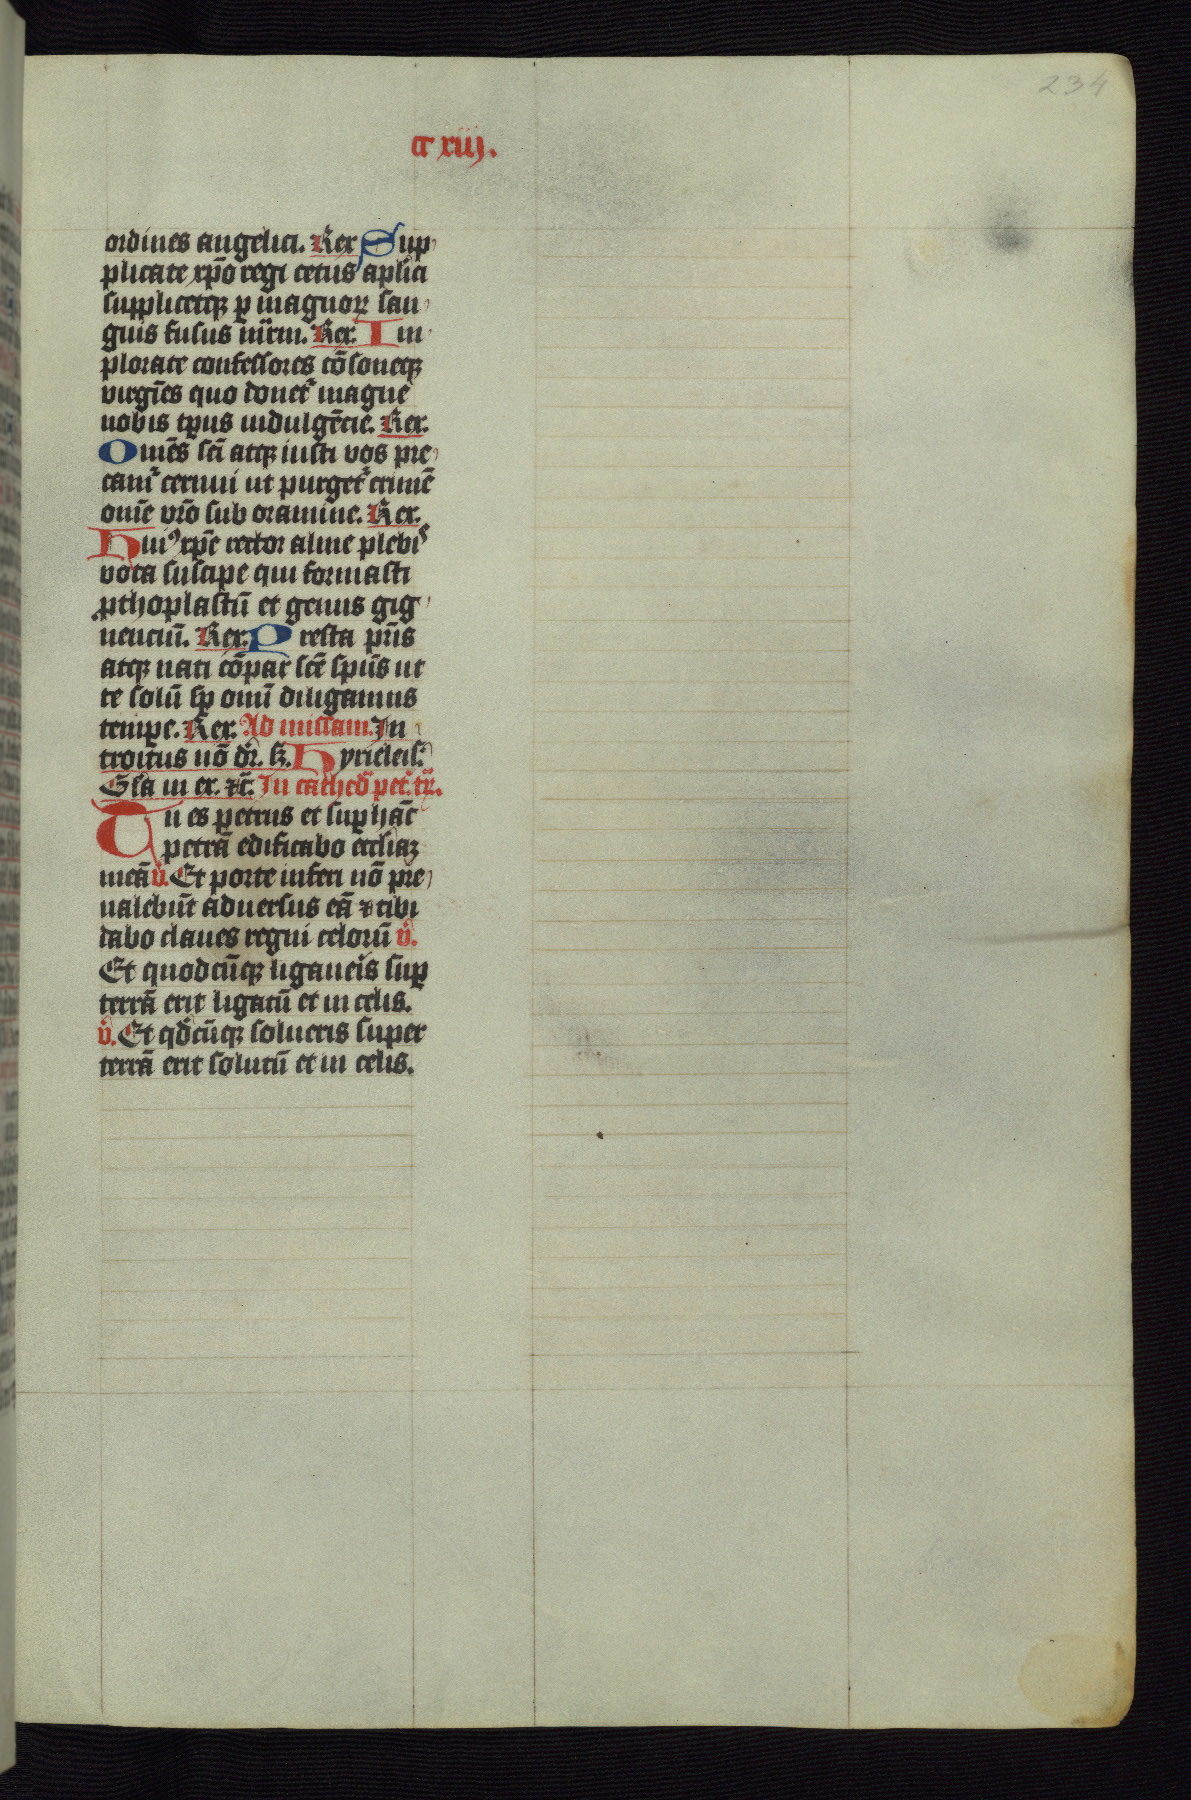 234
cc xiij.
ordines angelici. Rex Sup
plicate xp̄o regi cetus apl'ici
suppliceteqꝫ ꝑ magnoꝝ san
guis fusus m̄rm. Rex. Im
plorate confessores cōsoneteqꝫ
virgīes quo donet᷑ magne
nobis tp̄us indulgēcie. Rex.
Omēs sc̄i atqꝫ iusti vos pre
cam᷑ cernui ut purget᷑ crimē
omīe vr̄o sub oramine. Rex.
Huiꝰ xp̄e rector alme plebis
vota suscipe qui formasti
ꝓthoplastū et genus gig
nenciū. Rex. Presta pr̄is
atqꝫ nati cōpar sc̄e spūs ut
te solū sꝑ om̄i diligamus
tempe. Rex. Ad missam. In
troitus nō dr̄. sꝫ. Kyrieleis.
Gl'a in ex. ⁊c̄. In cathed᷑ pet᷑. tr̄.
Tu es petrus et suꝑ hāc
petrā edificabo eccliaꝫ
meā v̓. Et porte inferi nō pre
ualebūt aduersus eā ⁊ tibi
dabo claues regni celorū v̓.
Et quodcūqꝫ ligaueis suꝑ
terrā erit ligatū et in celis.
v̓. Et qd̓cūqꝫ solueris super
terrā erit solutū et in celis.